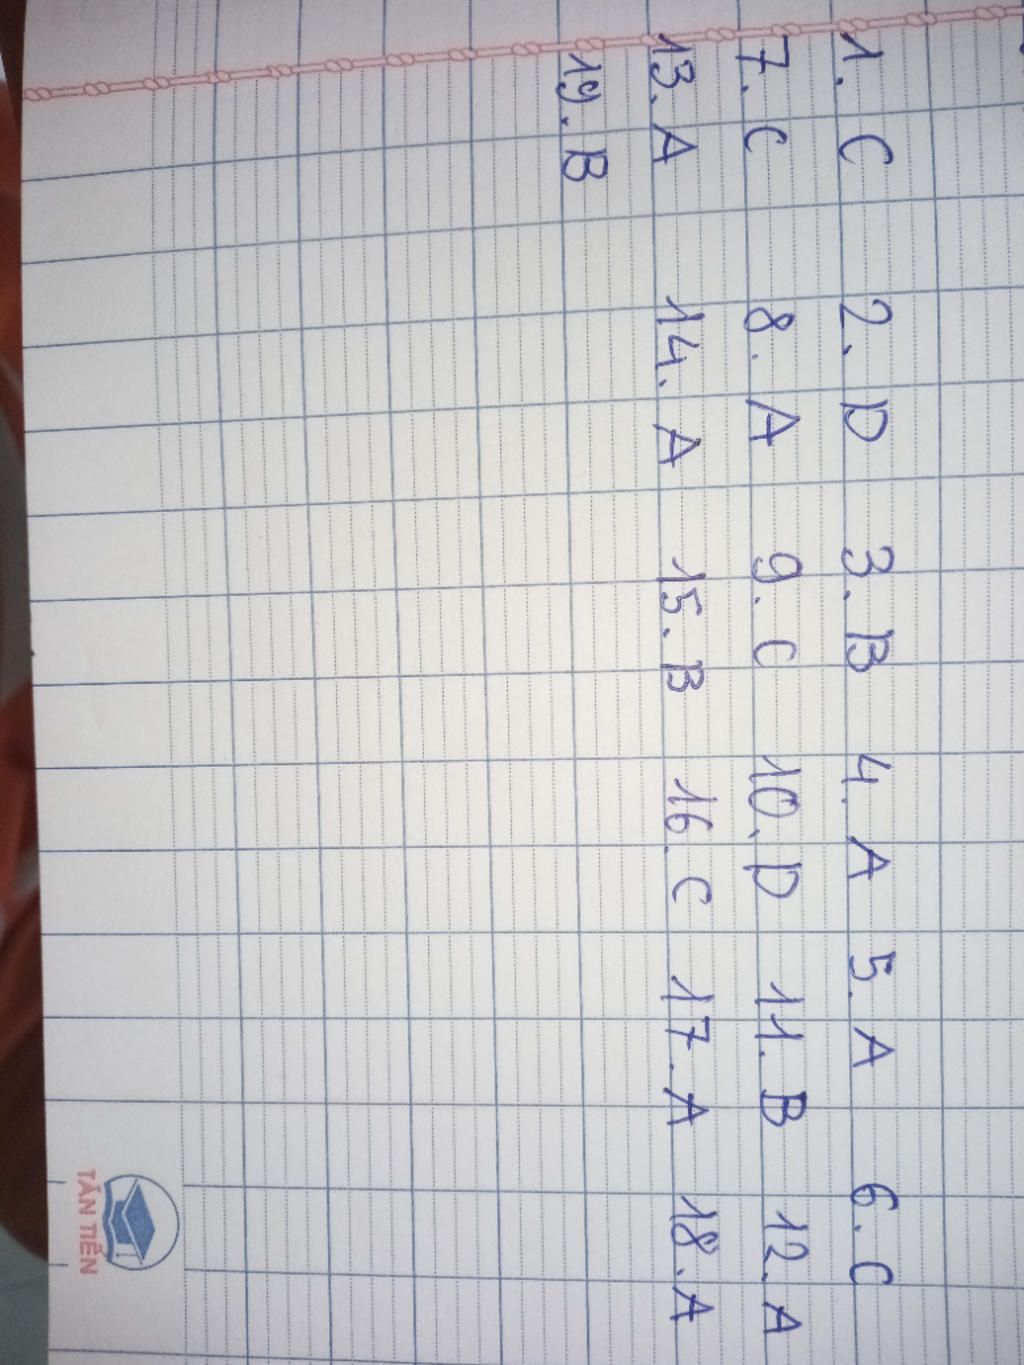 1. C 2. D 3. B 4. A 5. A 6. C
7. C 8. A 9. C 10. D 11. B 12. A
13. A 14. A 15. B 16. C 17. A 18. A
19. B
TÂN TIẾN